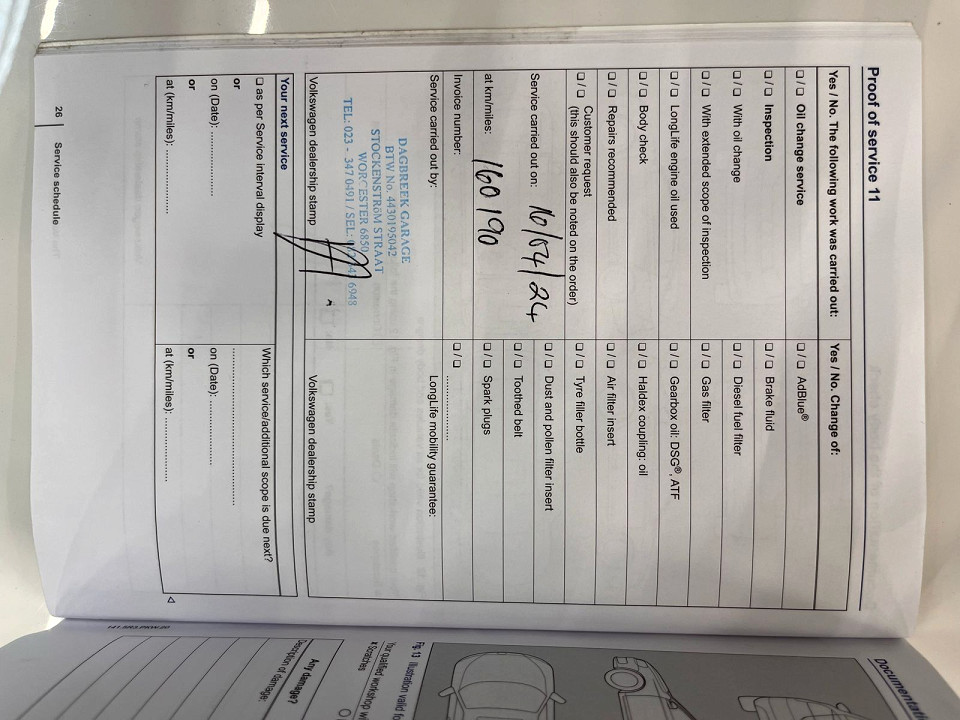 Proof of service 11
Yes / No. The following work was carried out:
Yes / No. Change of:
❑ / ❑ Oil change service
❑ / ❑ AdBlue®
❑ / ❑ Inspection
❑ / ❑ Brake fluid
❑ / ❑ With oil change
❑ / ❑ Diesel fuel filter
❑ / ❑ With extended scope of inspection
❑ / ❑ Gas filter
❑ / ❑ LongLife engine oil used
❑ / ❑ Gearbox oil: DSG®, ATF
❑ / ❑ Body check
❑ / ❑ Haldex coupling: oil
❑ / ❑ Repairs recommended
❑ / ❑ Air filter insert
❑ / ❑ Customer request
(this should also be noted on the order)
❑ / ❑ Tyre filler bottle
Service carried out on: 10/04/24
❑ / ❑ Dust and pollen filter insert
❑ / ❑ Toothed belt
at km/miles: 160 190
❑ / ❑ Spark plugs
Invoice number:
❑ / ❑ ............
Service carried out by:
LongLife mobility guarantee:
DAGBREEK GARAGE
BTW No. 4430195042
STOCKENSTRöM STRAAT
WORCESTER 6850
TEL: 023 - 347 0491 / SEL: 6948
Volkswagen dealership stamp
Volkswagen dealership stamp
Your next service
❑ as per Service interval display
or
on (Date): ................
or
at (km/miles): ................
Which service/additional scope is due next?
................................
on (Date): ................
or
at (km/miles): ................
26 Service schedule
Fig. 13 Illustration valid
Your qualified workshop
Scratches
Any damage?
Description of damage: